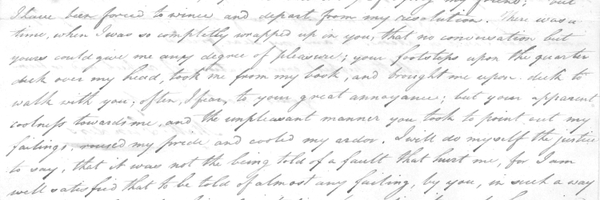 my friend; but
I have been forced to wince and depart from my resolution. There was a
time, when I was so completly wrapped up in you, that no conversation but
yours could give me any degree of pleasure; your footsteps upon the quarter
deck over my head, took me from my book, and brought me upon deck to
walk with you; often, I fear, to your great annoyance; but your apparent
coolness towards me, and the unpleasant manner you took to point out my
failings, roused my pride and cooled my ardor. I will do myself the justice
to say, that it was not the being told of a fault that hurt me, for I am
well satisfied that to be told of almost any failing, by you, in such a way